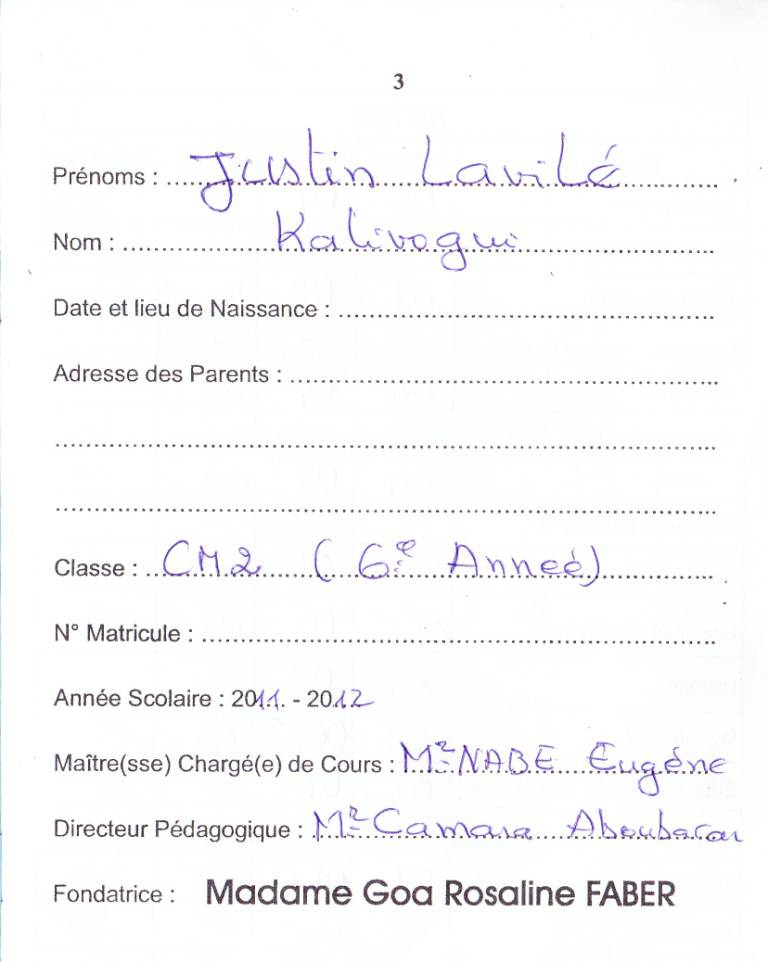 3
Prénoms : Justin Lavilé
Nom : Kalivogui
Date et lieu de Naissance :
Adresse des Parents :
Classe : CM2 ( 6e Anneé)
N° Matricule :
Année Scolaire : 2011. - 2012
Maître(sse) Chargé(e) de Cours : Mr NABE Eugéne
Directeur Pédagogique : Mr Camara Aboubacar
Fondatrice : Madame Goa Rosaline FABER